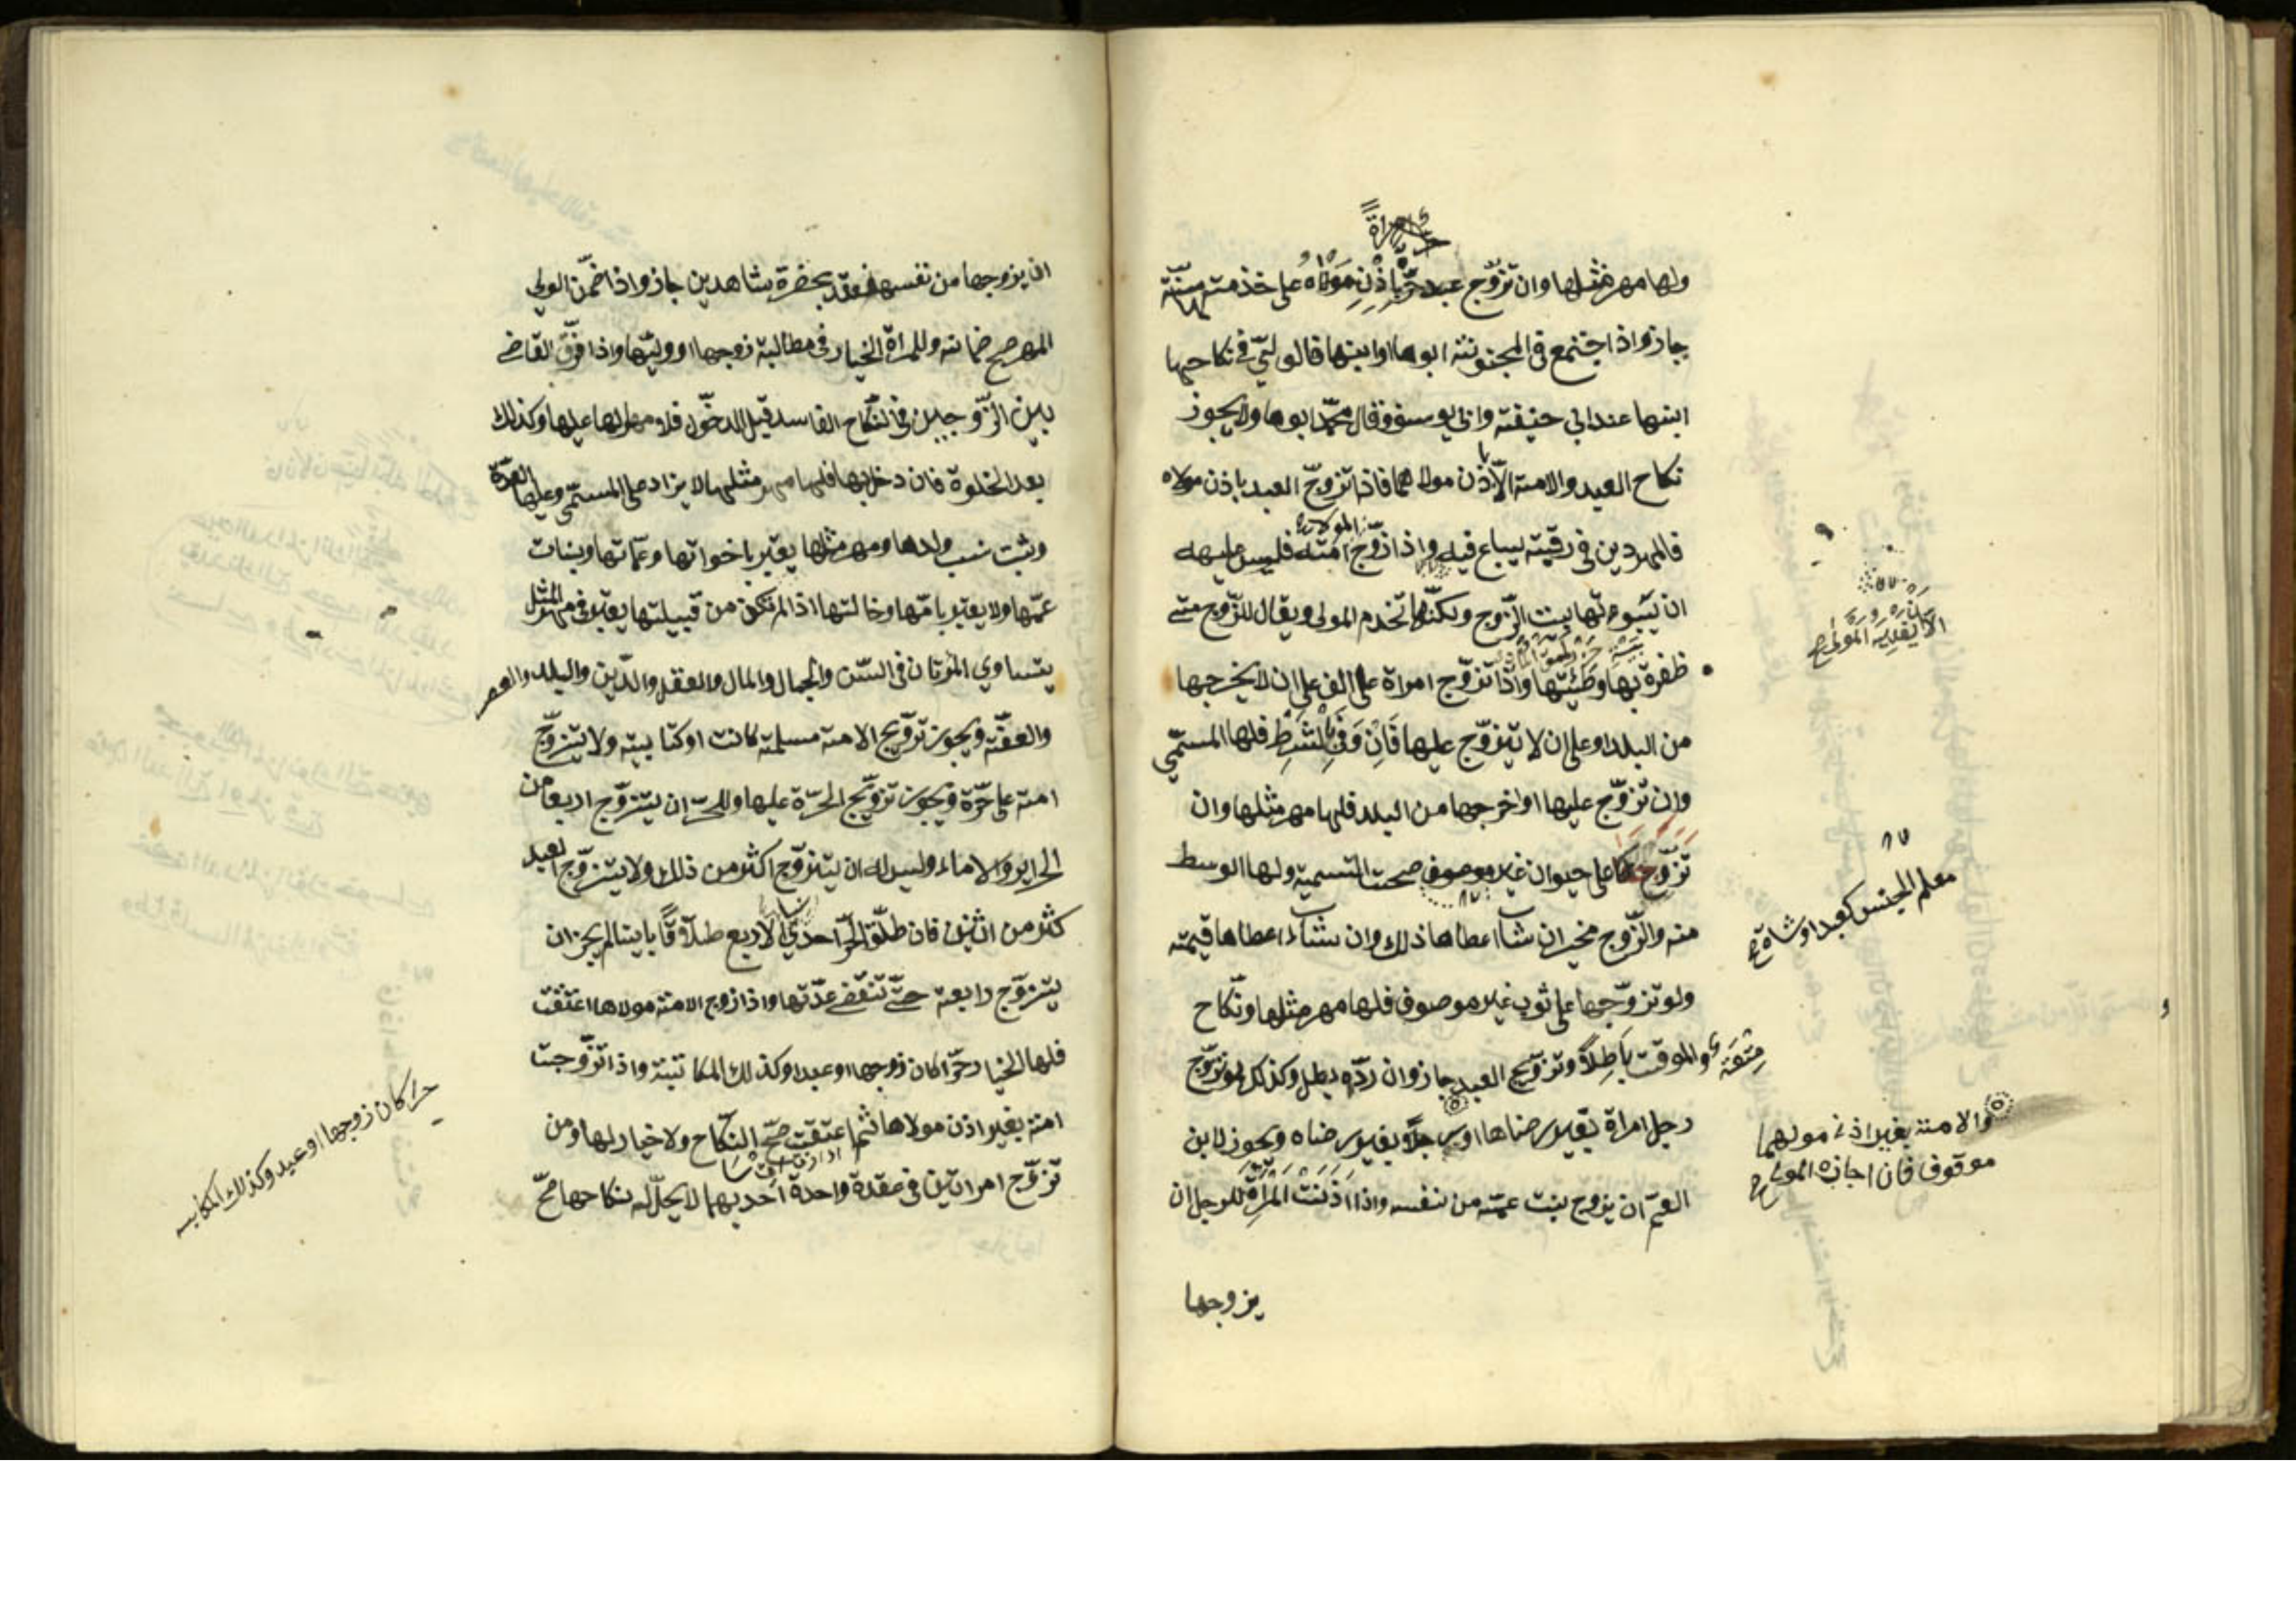 ولها مهر مثلها وان تزوّج عبد حرّة باذن مولاه على خذمته سنة
جاز واذا اجتمع فى المجنونة ابوها وابنها فالولىّ فى نكاحها
ابنها عند ابى حنيفة وابى يوسف وقال محمّد ابوها ولا يجوز
نكاح العبد والامة الّا باذن مولاهما فاذا تزوّج العبد باذن مولاه
فالمهر دين فى رقبته يباع فيه واذا زوّج المولا امته فليس عليه
ان يبوءتها بيت الزّوج ولكنّها تخدم المولى ويقال للزّوج متى
ظفرة بها وطئتها واذا تزوّج امراة على الف على ان لا يخرجها
من البلد او على ان لا يتزوّج عليها فان وفى بالشرط فلها المسمّى
وان تزوّج عليها او اخرجها من البلد فلها مهر مثلها وان
تزوّجها على حيوان غير موصوف صحت التسمية ولها الوسط
منه والزّوج مخير ان شاء اعطاها ذلك وان شاء اعطاها قيمته
ولو تزوّجها على ثوب غير موصوف فلها مهر مثلها ونكاح
متعة والموقت باطل وتزويج العبد جاز وان ردّه بطل وكذلك لو تزوّج
رجل امراة بغير رضاها او رجلا بغير رضاه ويجوز لابن
العمّ ان يزوج بنت عمّه من نفسه واذا اذنت المراة للرجل ان
يزوجها
معلم الجنس كعبد او شاة
والامة بغير اذن مولهما
موقوف فان اجازه المولى
ان يزوجها من نفسه فعقد بحضرة شاهدين جاز واذا ضمن الولي
المهر صح ضمانه وللمراة الخيار فى مطالبة زوجها او وليّها واذا فرّق القاضى
بين الزّوجين فى النّكاح الفاسد قبل الدخول فلا مهر لها عليها وكذلك
بعد الخلوة فان دخل بها فلها مهر مثلها لا يزاد على المسمّى وعليها العدّة
ويثبت نسب ولدها ومهر مثلها يعتبر باخواتها وعمّاتها وبنات
عمّها ولا يعتبر بامّها وخالتها اذا لم تكن من قبيلتها يعتبر فى مهر المثل
يتساوي المرتان فى السّن والجمال والمال والعقل والدّين والبلد والعصر
والعفّة ويجوز تزويج الامة مسلمة كانت او كتابية ولا يتزوّج
امة على حرّة ويجوز تزويج الحرّة عليها وللحرّ ان يتزوّج اربعا من
الحراير والاماء وليس له ان يتزوّج اكثر من ذلك ولا يتزوّج العبد
كثر من اثنين فان طلّق الحرّ احدي الاربع طلاقا باينا لم يجز ان
يتزوّج رابعة حتّى تنقضى عدّتها واذا زوج الامة مولاها اعتقت
فلها الخيار حرّا كان زوجها او عبدا وكذلك المكاتبة واذا تزوّجت
امة بغير اذن مولاها ثم اعتقت صحّ النكاح ولا خيار لها ومن
تزوّج امراتين فى عقدة واحدة احديهما لا يحلّ له نكاحها صحّ
حرا كان زوجها او عبد وكذلك المكاتبه